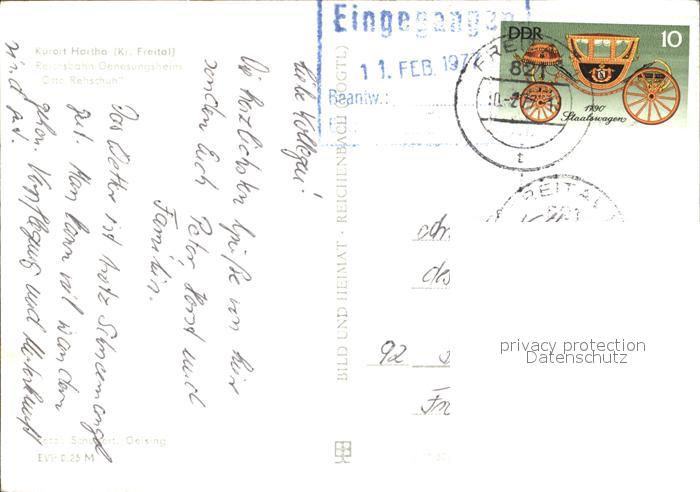 Kurort Hartha (Kr. Freital)
Reichsbahn-Genesungsheim
"Otto Rehschuh"
Liebe Kollegen!
Die herzlichsten Grüße von hier
senden Euch Peter Horst und
Familie.
Das Wetter ist trotz Schneemangel
gut. Man kann viel wandern
gehen. Verpflegung und Unterkunft
sind gut.
Foto: Schubert, Geising
EVP 0,25 M
BILD UND HEIMAT · REICHENBACH (VOGTL)
Eingegangen
11. FEB. 197
Beantw.:
DDR
10
1790
Staatswagen
FREIT
821
FREITAL
an
des
92
privacy protection
Datenschutz